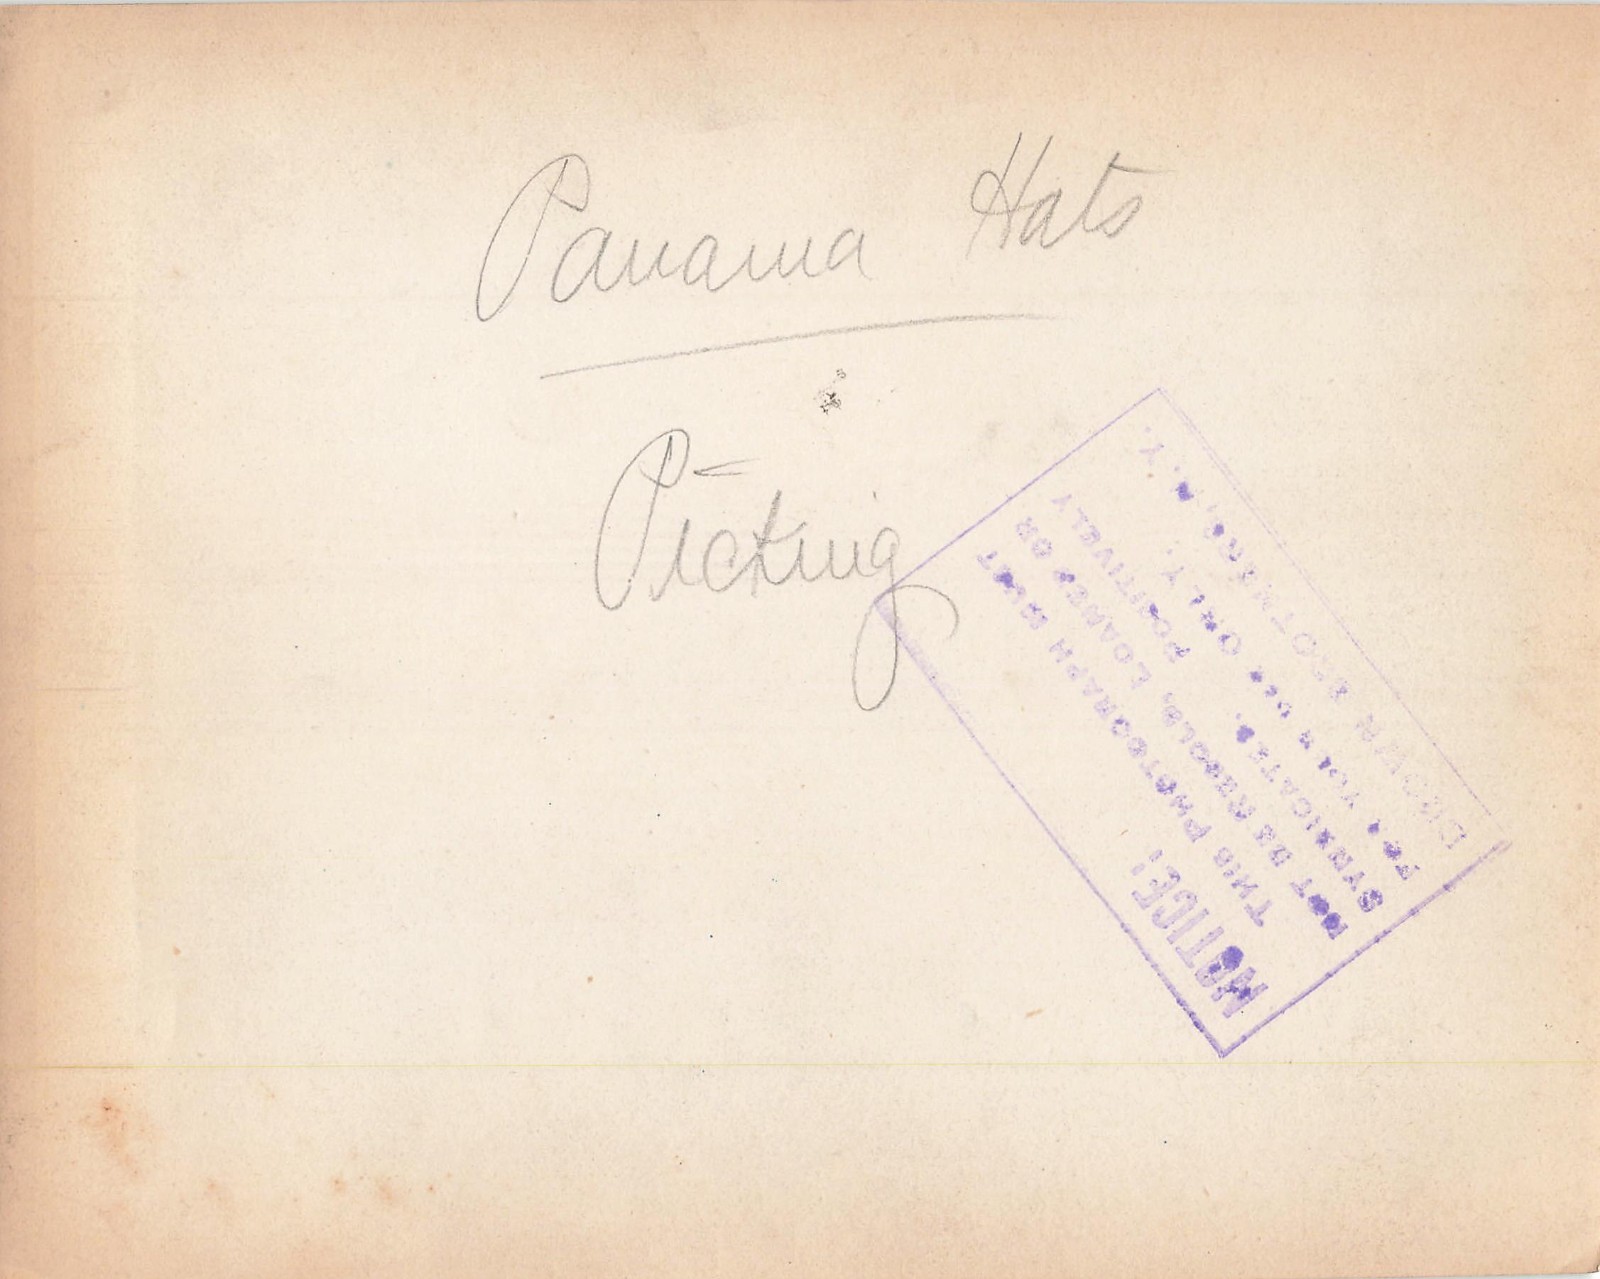 Panama Hats
Picking
NOTICE!
THIS PHOTOGRAPH MUST
NOT BE RESOLD, LOANED OR
SYNDICATED. POSITIVELY
FOR YOUR USE ONLY.
BROWN BROTHERS, N. Y.